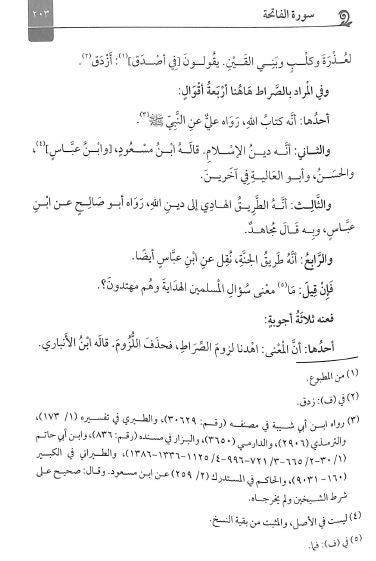 سورة الفاتحة
٢٠٣
لعُذْرَةَ وكَلْبٍ وبَنِي القَيْنِ. يقُولُونَ [فِي أَصْدَق](١): أَزْدَق(٢).
وفي المُراد بالصِّراط هَاهُنا أَرْبَعَةُ أَقْوَالٍ:
أحدُها: أنَّه كتابُ اللهِ، رَوَاه عليٌّ عن النَّبِيِّ ﷺ(٣).
والثاني: أنَّه دينُ الإِسْلامِ. قالَهُ ابْنُ مَسْعُودٍ، [وابْنُ عبَّاسٍ](٤)،
والحَسَنُ، وأبو العالِيةِ في آخَرِينَ.
والثَّالِثُ: أنَّهُ الطَّرِيقُ الهادِي إلى دينِ اللهِ، رَوَاه أبو صَالِحٍ عن ابْنِ
عبَّاسٍ، وبِه قَالَ مُجاهدٌ.
والرَّابعُ: أنَّهُ طَرِيقُ الجَنَّةِ، نُقِل عنِ ابْنِ عبَّاسٍ أيضًا.
فَإِنْ قِيلَ: مَا(٥) معْنى سُؤالِ المسلمين الهدَايةَ وهُم مهتدونَ؟.
فعنه ثلاثَةُ أجوِبةٍ:
أحدُها: أنَّ المعْنَى: اهْدنا لزومَ الصِّرَاطِ، فحذَفَ اللُّزُومَ. قالَه ابْنُ الأَنْبارِي.
(١) من المطبوع.
(٢) في (ف): زدق.
(٣) رواه ابن أبي شيبة في مصنفه (رقم: ٣٠٦٢٩)، والطبري في تفسيره (١/ ١٧٣)،
والترمذي (٢٩٠٦)، والدارمي (٣٦٥٠)، والبزار في مسنده (رقم: ٨٣٦)، وابن أبي حاتم
(١/ ٣٠-٢/ ٦٦٥-٣/ ٧٢١-٩٩٦-٤/ ١١٢٥-١٣٣٦-١٣٨٦)، والطبراني في الكبير
(١٦٠-٩٠٣١)، والحاكم في المستدرك (٢/ ٢٥٩) عن ابن مسعود. وقال: صحيح على
شرط الشيخين ولم يخرجاه.
(٤) ليست في الأصل، والمثبت من بقية النسخ.
(٥) في (ف): فما.